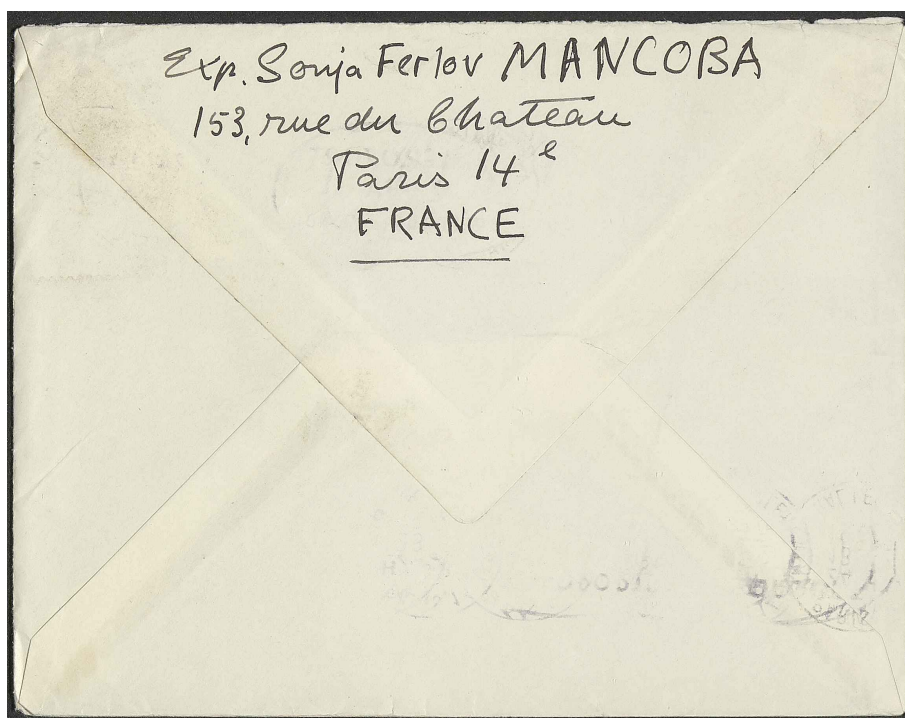 Exp. Sonja Ferlov MANCOBA
153, rue du Chateau
Paris 14e
FRANCE